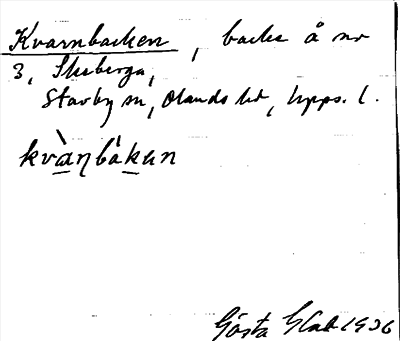 Kvarnbacken, backe å nr
3, Skeberga,
Stavby sn, Olands hd, Upps. l.
kvàṇbákən
Gösta Glad 1936